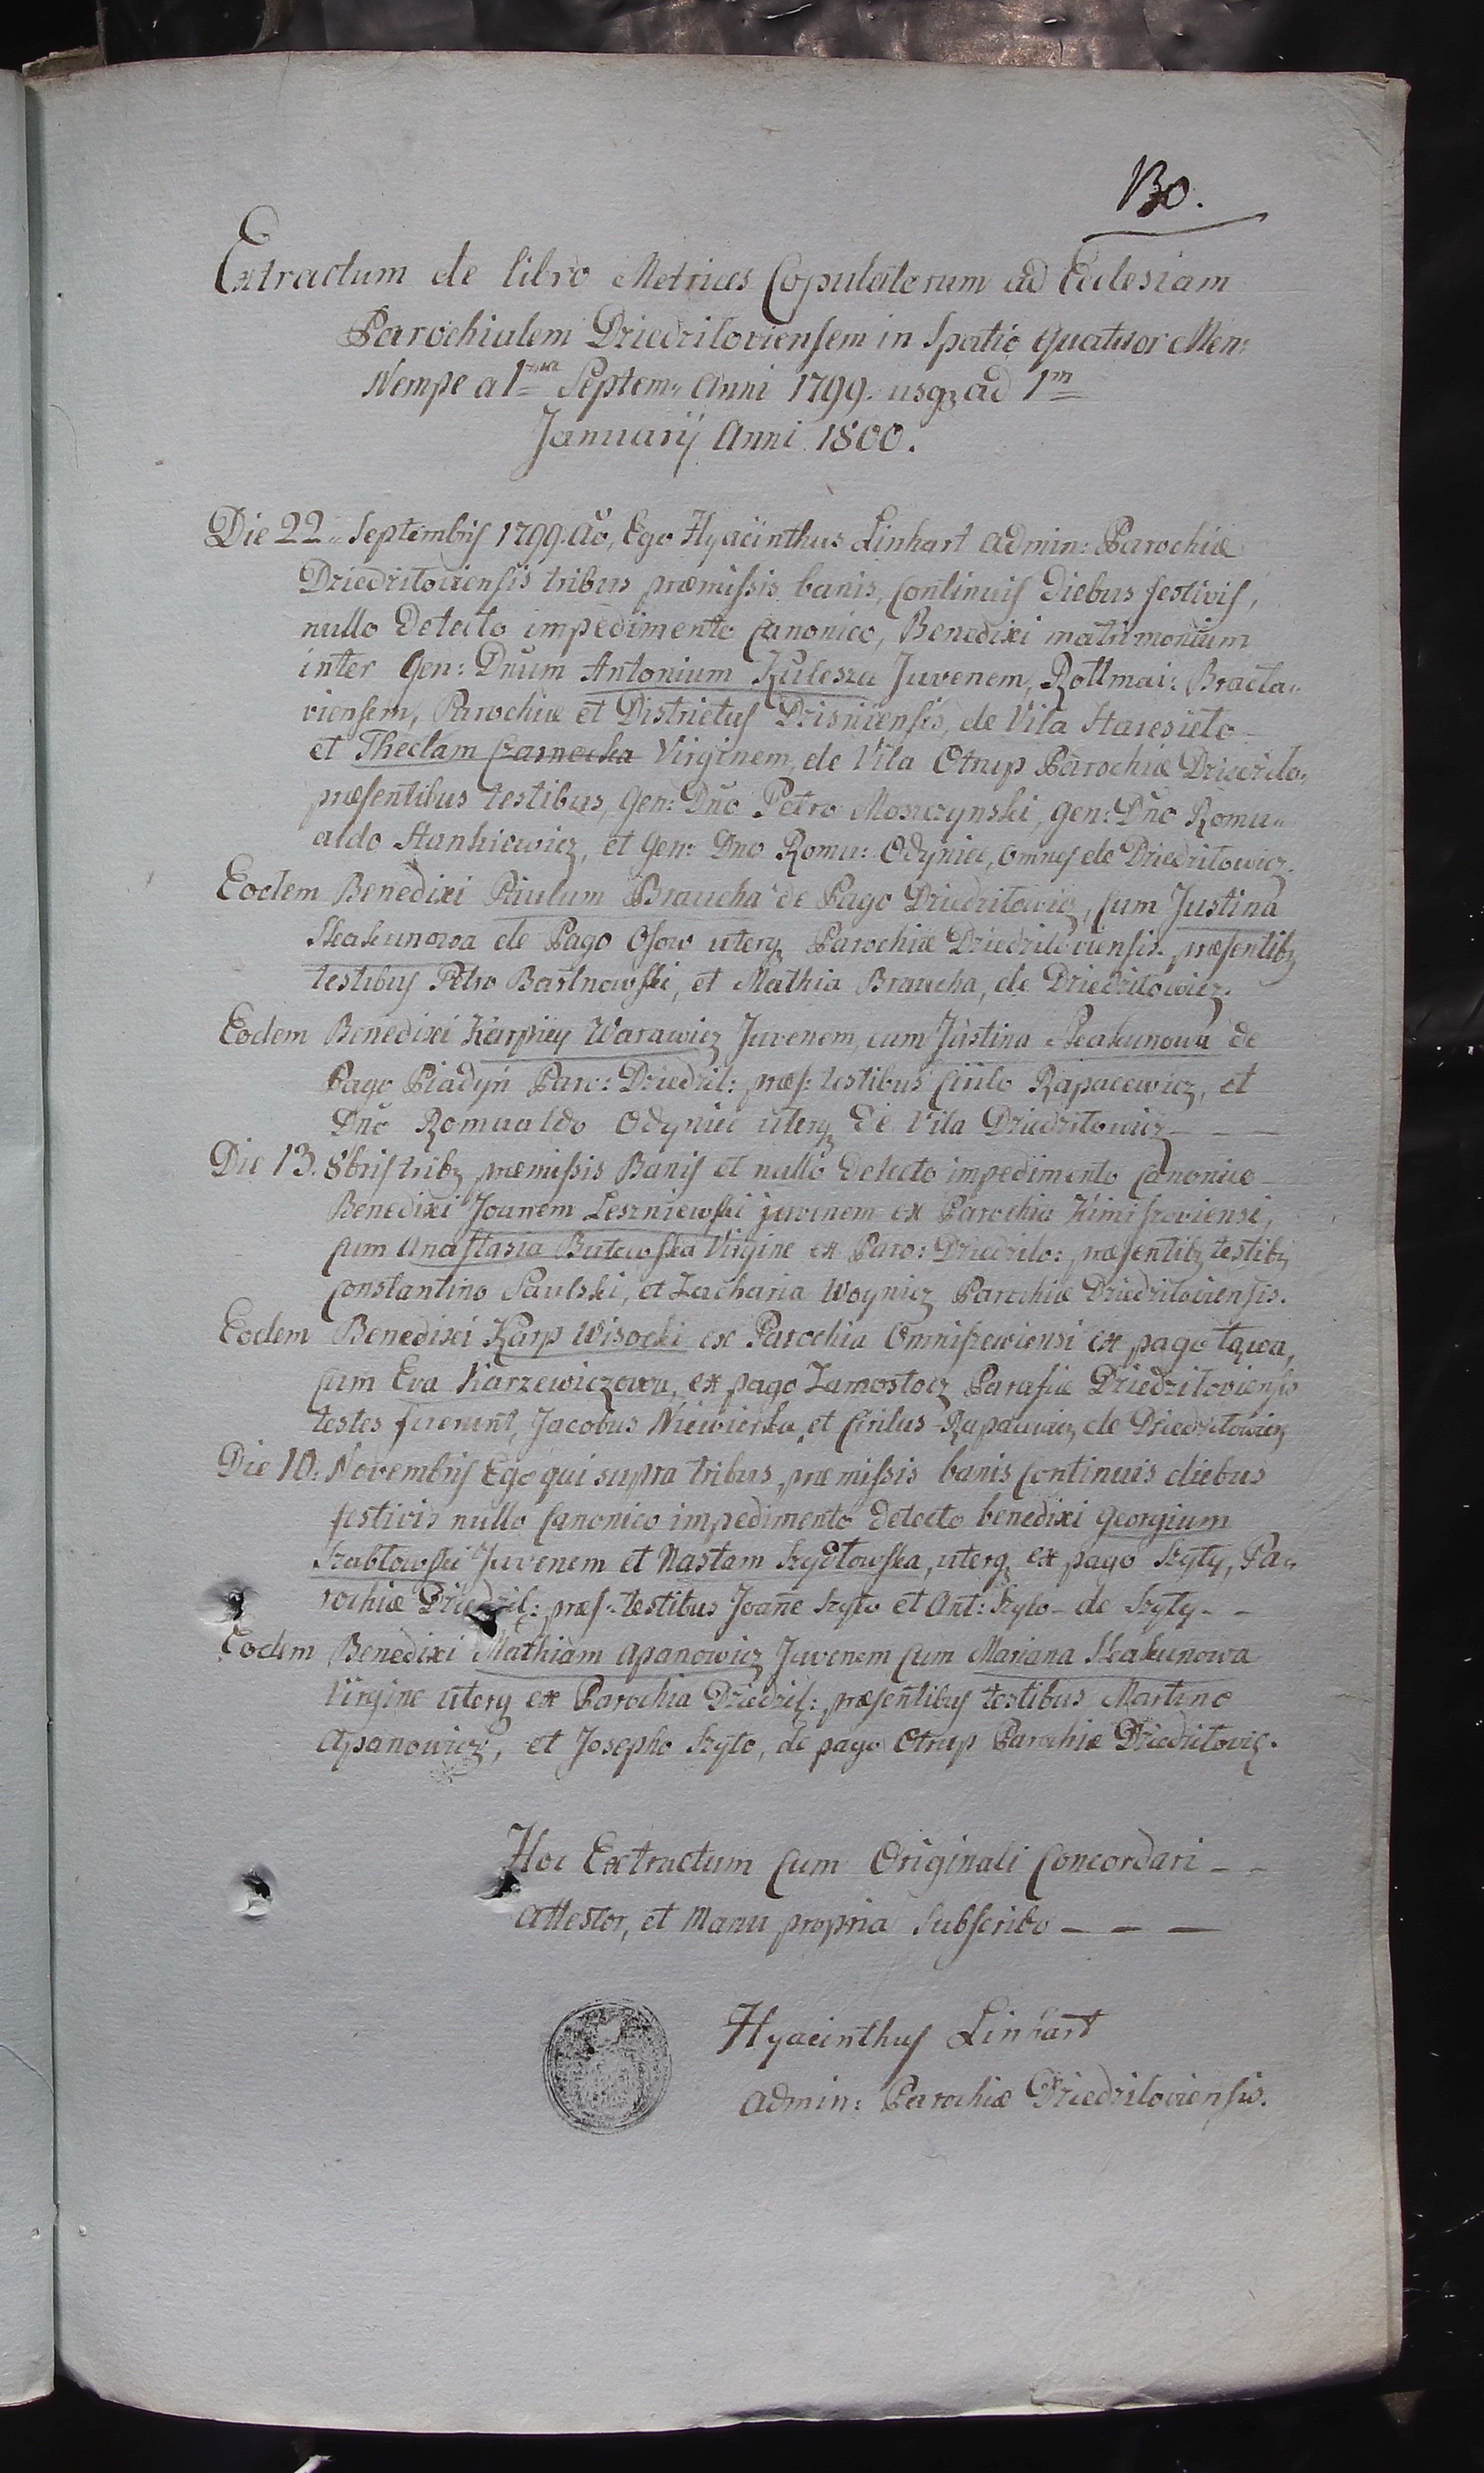 130.
Extractum de libro Metrices Copulatorum ad Ecclesiam
Parochialem Dziedziloviensem in Spatio quatuor Men:
Nempe a 1ma Septem: Anni 1799. usqz ad 1m
Januarij Anni 1800.
Die 22 Septembris 1799. Ao, Ego Hyacinthus Linhart Admin: Parochiæ
Dziedziloviensis tribus præmissis banis, continuis diebus festivis,
nullo detecto impedimento canonico, Benedixi matrimonium
inter Gen: Dnum Antonium Kulesza Juvenem, Rottmai: Bracla-
viensem, Parochiæ et Districtus Dzisniensis, de Vila Staresieło
et Theclam Czarnocka Virginem, de Vila Otrup Parochiæ Dziedzilo:
præsentibus testibus, Gen: Dno Petro Moszczynski, Gen: Dno Romu-
aldo Stankiewicz, et Gen: Dno Romu: Odyniec, omnes de Dziedzilowicz.
Eodem Benedixi Paulum Braucha de Pago Dziedzilowicz, cum Justina
Skakunowa de Pago Osow uterqz Parochiæ Dziedziloviensis. præsentibz
testibus Petro Bartnowski, et Mathia Braucha, de Dziedzilowicz.
Eodem Benedixi Karpiiey Warawicz Juvenem, cum Justina Skakunowa de
Pago Piadyń Paro: Dziedzil: præs: testibus Cirilo Rapacewicz, et
Dno Romualdo Odyniec uterqz de Vila Dziedzilowicz - - -
Die 13. 8bris tribz præmissis Banis et nullo detecto impedimento canonico
Benedixi Joannem Leszniewski juvenem ex Parochia Zimiszoviensi,
cum Anastasia Butewska Virgine ex Paro: Dziedzilo: præsentibz testibz
Constantino Saulski, et Zacharia Woynicz Parochiæ Dziedziloviensis.
Eodem Benedixi Karp Wisocki ex Parochia Omniszewiensi ex pago Ława,
cum Eva Karzewiczowa, ex pago Zamostocz Parafiæ Dziedziloviensis
testes fuerunt, Jacobus Niewierka, et Cirilus Rapacewicz de Dziedzilowicz
Die 10. Novembris Ego qui supra tribus præmissis banis continuis diebus
festivis nullo canonico impedimento detecto benedixi Georgium
Szabłowski Juvenem et Nastam Szydłowska, uterqz ex pago Szyły, Pa-
rochiæ Dziedzil: præs: testibus Joane Szyło et Ant: Szyło - de Szyły - -
Eodem Benedixi Mathiam Apanowicz Juvenem cum Mariana Skakunowa
Virgine uterqz ex Parochia Dziedzil: præsentibus testibus Martino
Apanowicz, et Josepho Szyło, de pago Otrup Parochiæ Dziedzilovic.
Hoc Extractum cum Originali Concordari - -
Attestor, et Manu propria Subscribo - - -
Hyacinthus Linhart
Admin: Parochiæ Dziedziloviensis.